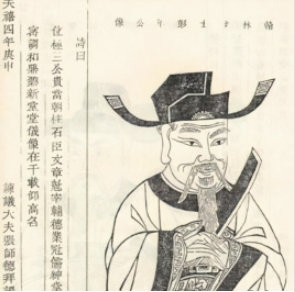 翰林學士彭年公像
詩曰
位極三公貴當朝柱石臣文章魁宰輔德業冠儒紳
調和新堂堂儀像在千載仰高名
天禧四年庚申
諫議大夫張師德拜